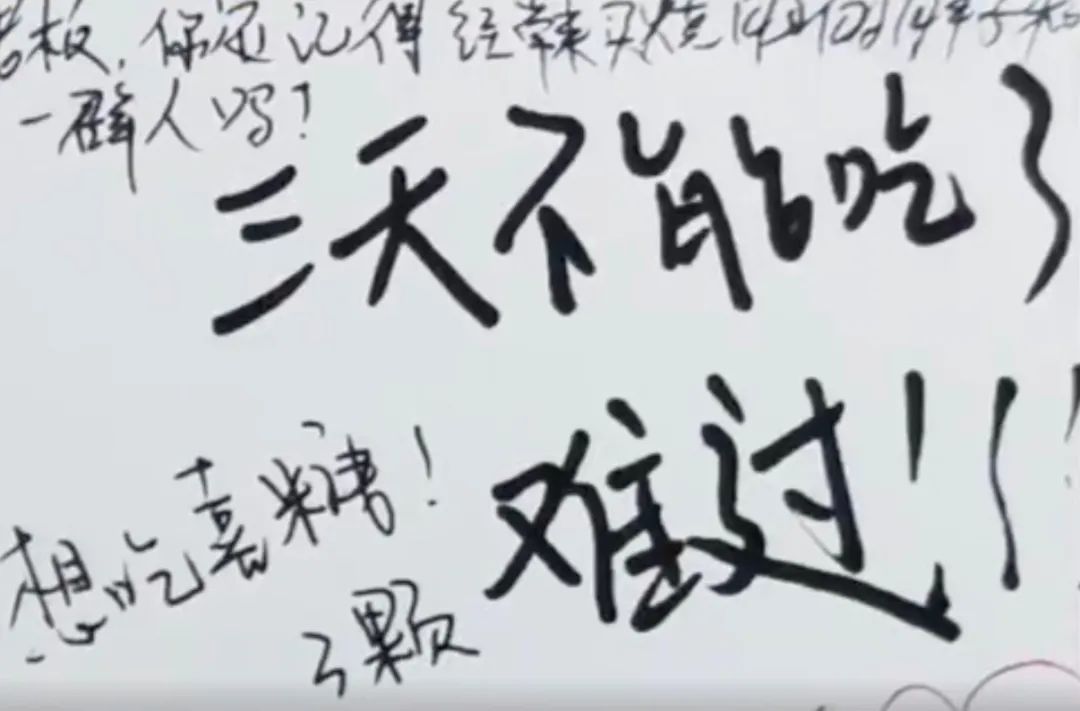 老板,你还记得经常来买烧
一群人吗?
三天不能吃了
难过!!!
想吃喜糖!
3颗